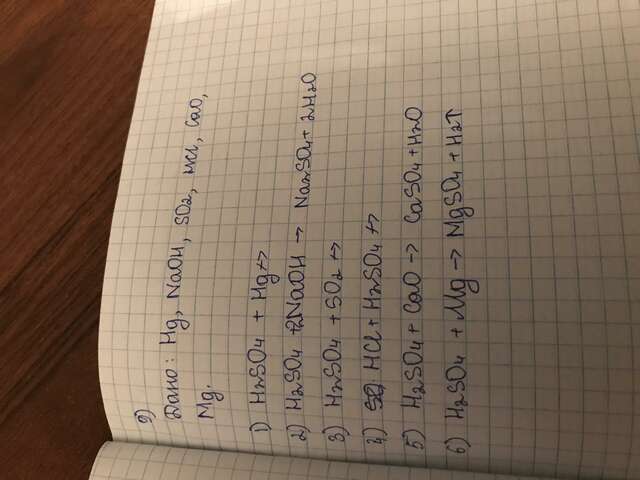 9)
Дано: Hg, NaOH, SO2, HCl, CaO,
Mg.
1) H2SO4 + Hg ↛
2) H2SO4 + 2NaOH → Na2SO4 + 2H2O
3) H2SO4 + SO2 ↛
4) HCl + H2SO4 ↛
5) H2SO4 + CaO → CaSO4 + H2O
6) H2SO4 + Mg → MgSO4 + H2↑